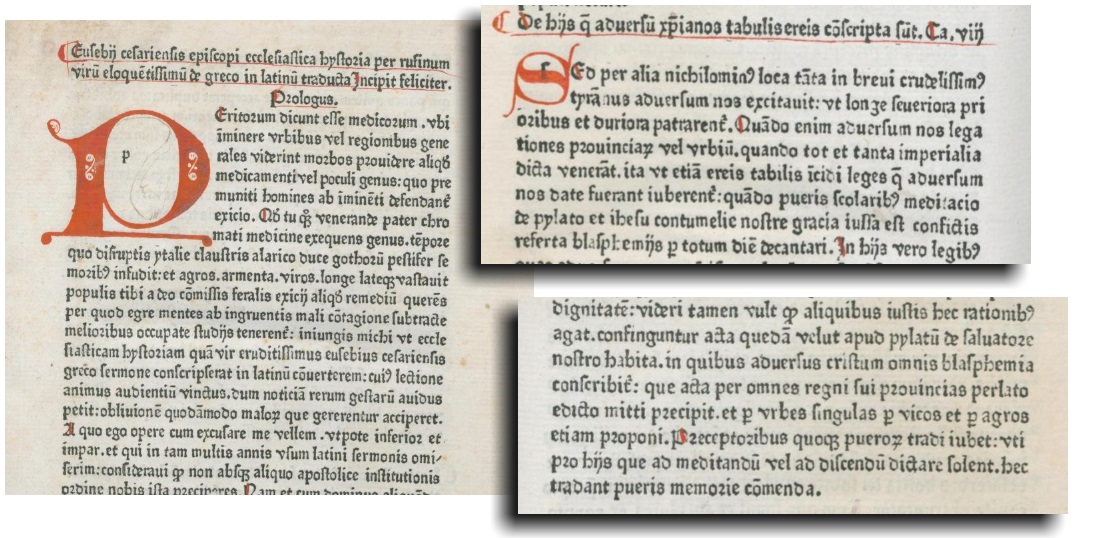 Eusebij cesariensis episcopi ecclesiastica hystoria per rufinum
virū eloquētissimū de greco in latinū traducta Incipit feliciter.
Prologus.
Peritorum dicunt esse medicorum . vbi
īminere vrbibus vel regionibus gene
rales viderint morbos prouidere aliqď
medicamenti vel poculi genus: quo pre
muniti homines ab iminēti defendant᷑
exicio. Qď tu qꝫ venerande pater chro
mati medicine exequens genus. tēpore
quo disruptis ytalie claustris alarico duce gothorū pestifer se
morbꝰ infudit: et agros. armenta. viros. longe lateqꝫ vastauit
populis tibi a deo cōmissis feralis exicij aliqď remediū querēs
per quod egre mentes ab ingruentis mali cōtagione subtracte
melioribus occupate studijs tenerent᷑: iniungis michi vt eccle
siasticam hystoriam quā vir eruditissimus eusebius cesariensis
greco sermone conscripserat in latinū cōuerterem: cuiꝰ lectione
animus audientiū vinctus. dum noticiā rerum gestarū auidus
petit: obliuionē quodāmodo maloꝝ que gererentur acciperet.
A quo ego opere cum excusare me vellem . vtpote inferior et
impar. et qui in tam multis annis vsum latini sermonis omi-
serim: consideraui ꝙ non absqꝫ aliquo apostolice institutionis
ordine nobis ista preciperes. Nam et cum dominus aliquādo
De hijs q̄ aduersū xp̄ianos tabulis ereis cōscripta sūt. Ca. viij
Sed per alia nichilominꝰ loca tāta in breui crudelissimꝰ
tyrānus aduersum nos excitauit: vt longe seueriora pri
oribus et duriora patrarent᷑. Quādo enim aduersum nos lega
tiones prouinciaꝝ vel vrbiū. quando tot et tanta imperialia
dicta venerāt. ita vt etiā ereis tabilis īcidi leges q̄ aduersum
nos date fuerant iuberent᷑: quādo pueris scolaribꝰ meditacio
de pylato et ihesu contumelie nostre gracia iussa est confictis
referta blasphemijs ꝑ totum diē decantari. In hijs vero legibꝰ
dignitatē: videri tamen vult ꝙ aliquibus iustis hec rationibꝰ
agat. confinguntur acta quedā velut apud pylatū de saluatore
nostro habita. in quibus aduersus cristum omnis blasphemia
conscribit᷑: que acta per omnes regni sui prouincias perlato
edicto mitti precipit. et ꝑ vrbes singulas ꝑ vicos et ꝑ agros
etiam proponi. Preceptoribus quoqꝫ pueroꝝ tradi iubet: vti
pro hijs que ad meditandū vel ad discendū dictare solent. hec
tradant pueris memorie cōmenda.